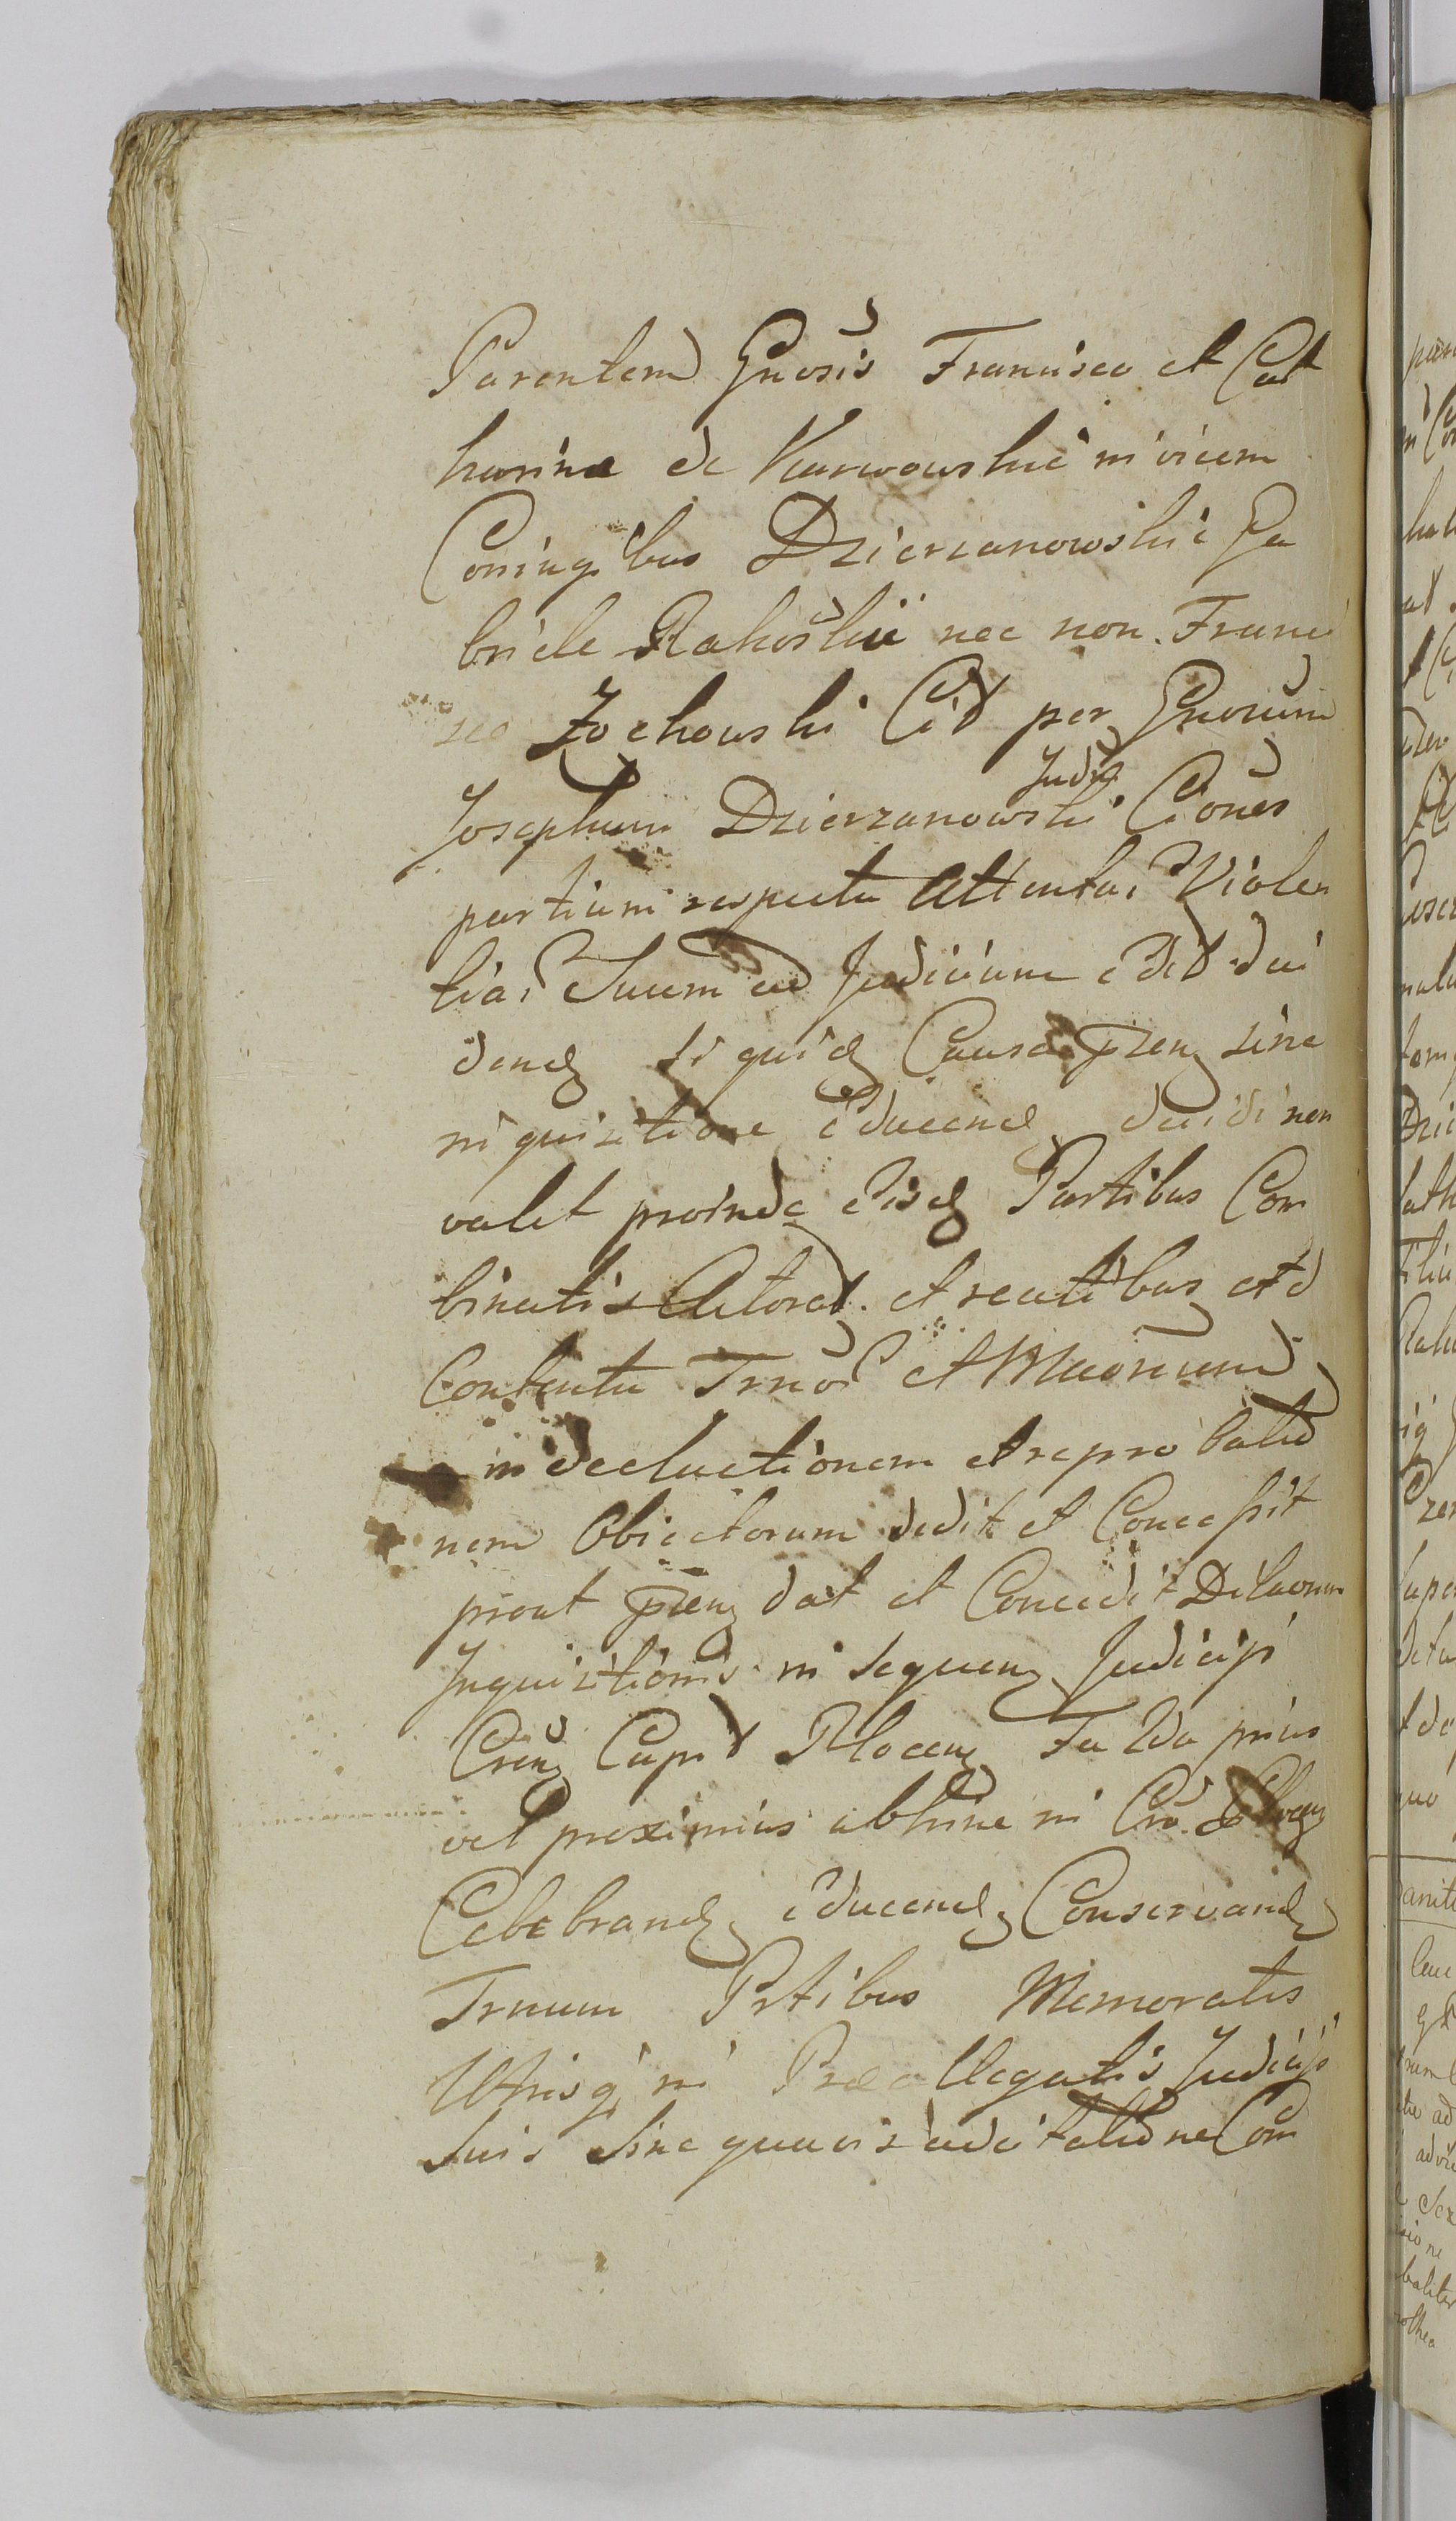 Parentem Gnosis Francisco et Cat
harina de Karwowskie invicem
Coniugibus Dzierzanowskie Ga
briele Rakoskie nec non Franci
sco Zochowski Citt per Gnosum
Josephum Dzierzanowski Judic Ciones
partium respectu Attentas Violen
tias Suum ad Judicium edit deci
dend siquid Causa pñen sine
inquisitione educend decidi non
valet proinde eisd Partibus Com
binatis Actorat et reatibus
Contentu Trnos et
in deductionem et reprobatio
nem Obiectorum dedit et Concessit
prout pñen dat et Concedit Dilaonem
Inquisitionis in sequen Judicijs
Cren Capit Plocen
vel proximius abhinc in
Celebrand educend Conservand
Trnum Ptibus Memoratis
Utrisq in Præallegatis Judicijs
Suis Sine quavis adcitatione Com